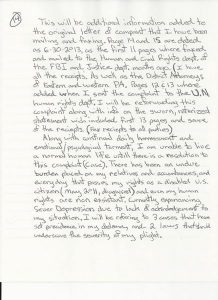 14
This will be additional information added to
the original letter of complaint that I have been
mailing and faxing. Page 14 and 15 are dated
as 6-30-2013, as the first 11 pages where faxed
and mailed to the Human and Civil Rights dept. of
the FBI and Justice dept. months ago, (I have
all the receipts. As well as the District Attorneys
of Eastern and Western PA, Pages 12 & 13 where
added when I sent the complaint to the U.N
human rights dept. I will be refaxing this
complaint along with it as the sworn, notarized
statement which included first 13 pages and some
of the receipts. (Fax receipts to all parties)
Along with continued daily harassment and
emotional/psycological torment, I am unable to live
a normal human life until there is a resolution to
this complaint (case). There has been an undue
burden placed on my relatives and associations, and
everyday that passes my rights as a disabled U.S.
citizen (May 2011, diagnosed) and even my human
rights are non existant. Currently experiencing
Sever Depression due to lack of acknowledgement to
my situation, I will be refering to 3 cases that have
set precedence in my defense, and 2 laws that should
underscore the severity of my plight.